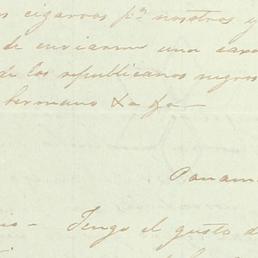 cigarros pª nosotros y
de enviarme una
de los republicanos negros
hermano La fa
Panam
io - Tengo el gusto d